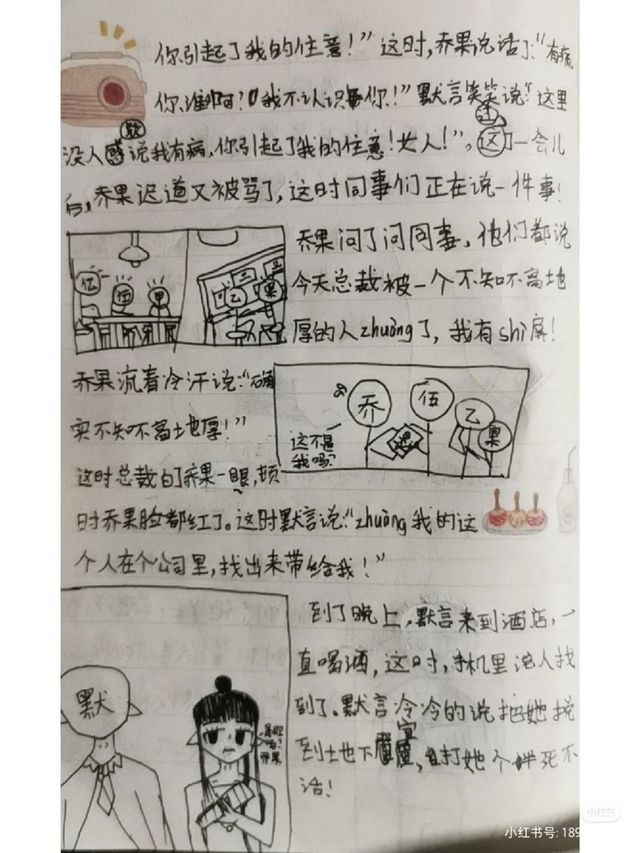 你引起了我的住意！”这时，乔果说话了：“有病，
你谁啊？我不认识你！”默言笑笑说：“这里
没人敢说我有病，你引起了我的住意！女人！”。过了一会儿
后，乔果迟道又被骂了，这时同事们正在说一件事！
乔果问了问同事，他们都说
今天总裁被一个不知不高地
厚的人zhuàng了，我有shì屏！
伍
伍
甲
乙
果
乔果流着冷汗说：“确
实不知不高地厚！”
乔
伍
乙
果
这不是
我吗？
这时总裁白了乔果一眼，顿
时乔果脸都红了。这时默言说：“zhuàng我的这
个人在个公司里，找出来带给我！”
到了晚上，默言来到酒店，一
直喝酒，这时，手机里说人找
到了。默言冷冷的说把她拖
到土地下室，打她个半死不
活！
默
乔果
小红书
小红书号：189